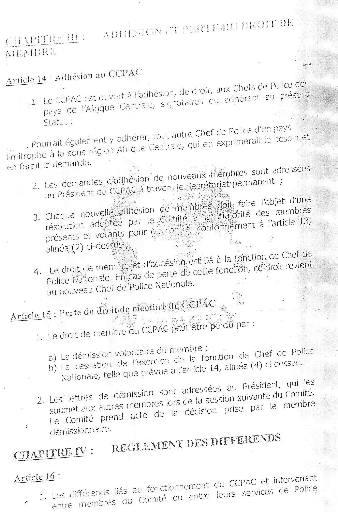 CHAPITRE III : ADHESION ET PERTE DU DROIT DE
MEMBRE
Article 14 : Adhésion au CCPAC
1. Le CCPAC est ouvert à l'adhésion, de droit, aux Chefs de Police de
pays de l'Afrique Centrale, signataires ou adhérent au présent
Statut.
Pourrait également y adhérer, tout autre Chef de Police d'un pays
limitrophe à la sous région Afrique Centrale, qui en exprimerait le besoin et
en ferait la demande.
2. Les demandes d'adhésion de nouveaux membres sont adressées
au Président du CCPAC à travers le Secrétariat permanent ;
3. Chaque nouvelle adhésion de membres doit faire l'objet d'une
résolution adoptée par le Comité à la majorité des membres
présents et votants pour conformément à l'article 13,
alinéa (2) ci-dessus.
4. Le droit de membre et d'adhésion est lié à la fonction de Chef de
Police Nationale. En cas de perte de cette fonction, ce droit revient
au nouveau Chef de Police Nationale.
Article 15 : Perte du droit de membre du CCPAC
1. Le droit de membre du CCPAC peut être perdu par :
a) La démission volontaire du membre ;
b) La cessation de l'exercice de la fonction de Chef de Police
Nationale, telle que prévue à l'article 14, alinéa (4) ci-dessus.
2. Les lettres de démission sont adressées au Président, qui les
soumet aux autres membres lors de la session suivante du Comité.
Le Comité prend acte de la décision prise par le membre
démissionnaire.
CHAPITRE IV : REGLEMENT DES DIFFERENDS
Article 16 :
1. Les différends liés au fonctionnement du CCPAC et intervenant
entre membres du Comité ou entre leurs services de Police